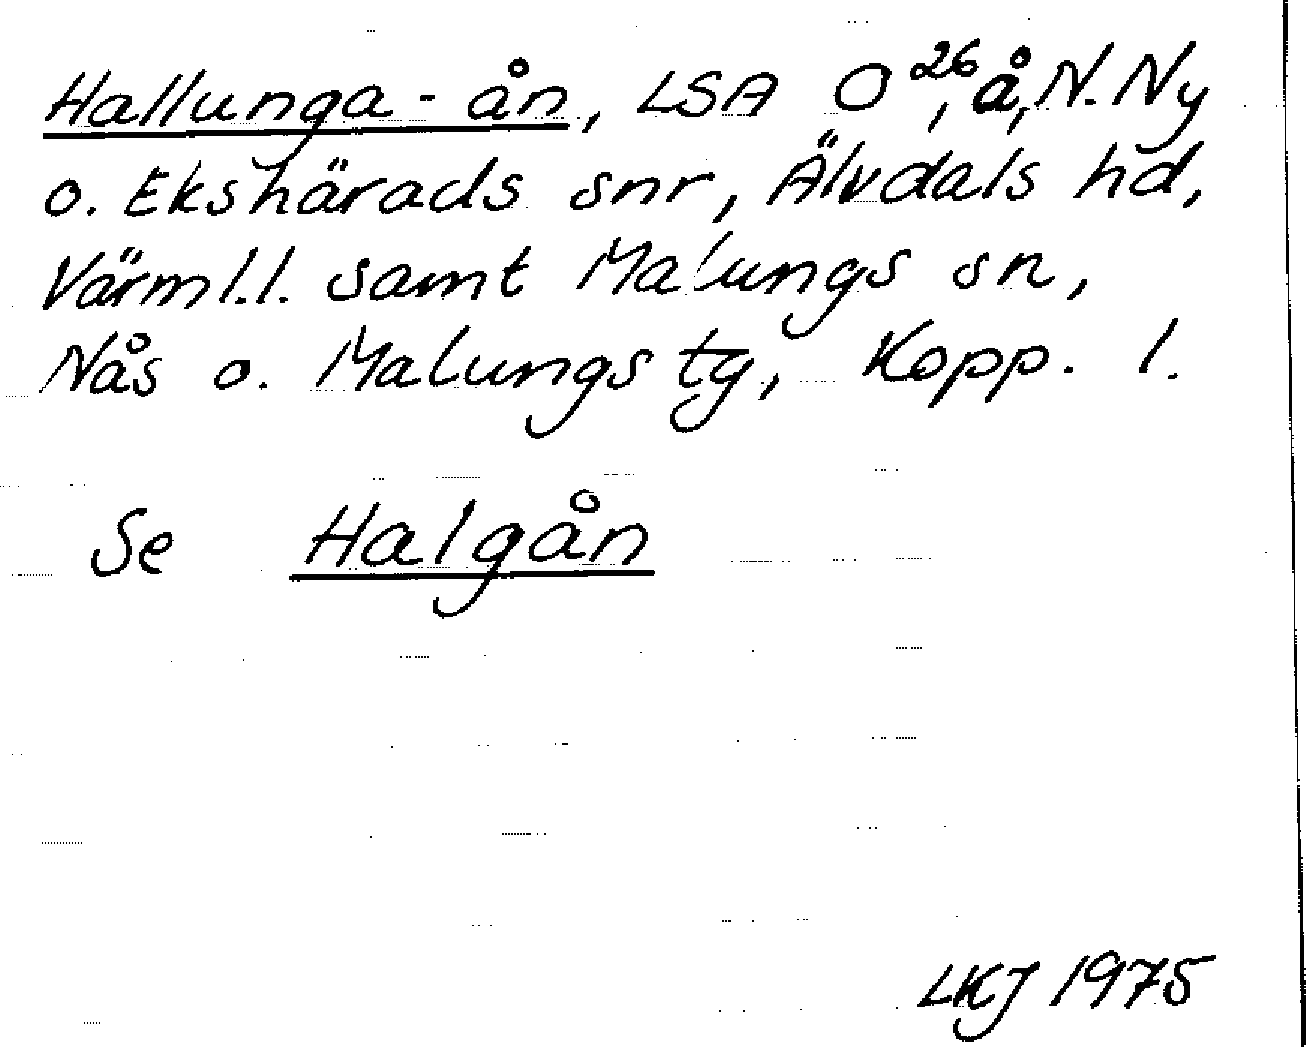 Hallunga-ån, LSA O 26, å, N. Ny
o. Ekshärads snr, Älvdals hd,
Värml.l. samt Malungs sn,
Nås o. Malungs tg, Kopp. l.
Se Halgån
LKJ 1975